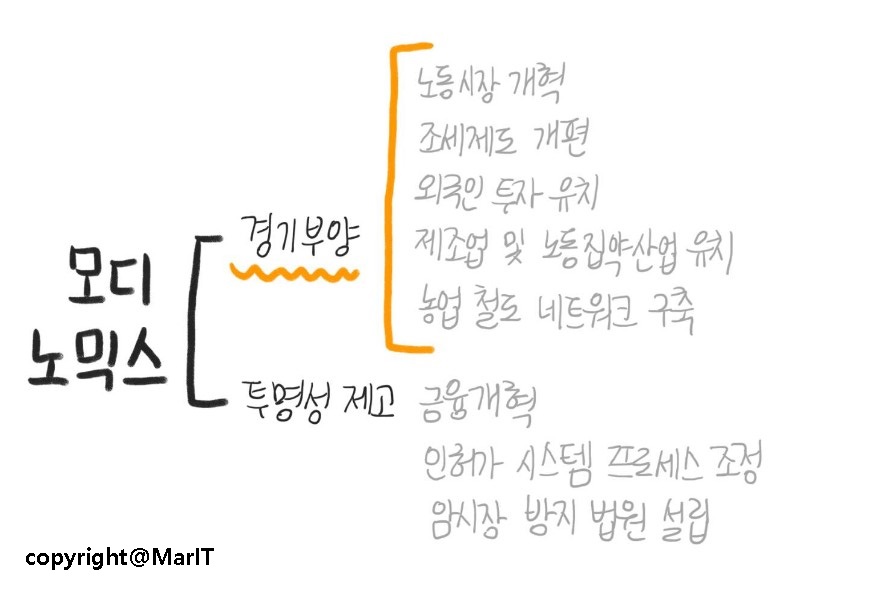 모디
노믹스
경기부양
노동시장 개혁
조세제도 개편
외국인 투자 유치
제조업 및 노동집약산업 유치
농업 철도 네트워크 구축
투명성 제고
금융개혁
인허가 시스템 프로세스 조정
암시장 방지 법원 설립
copyright@MarIT